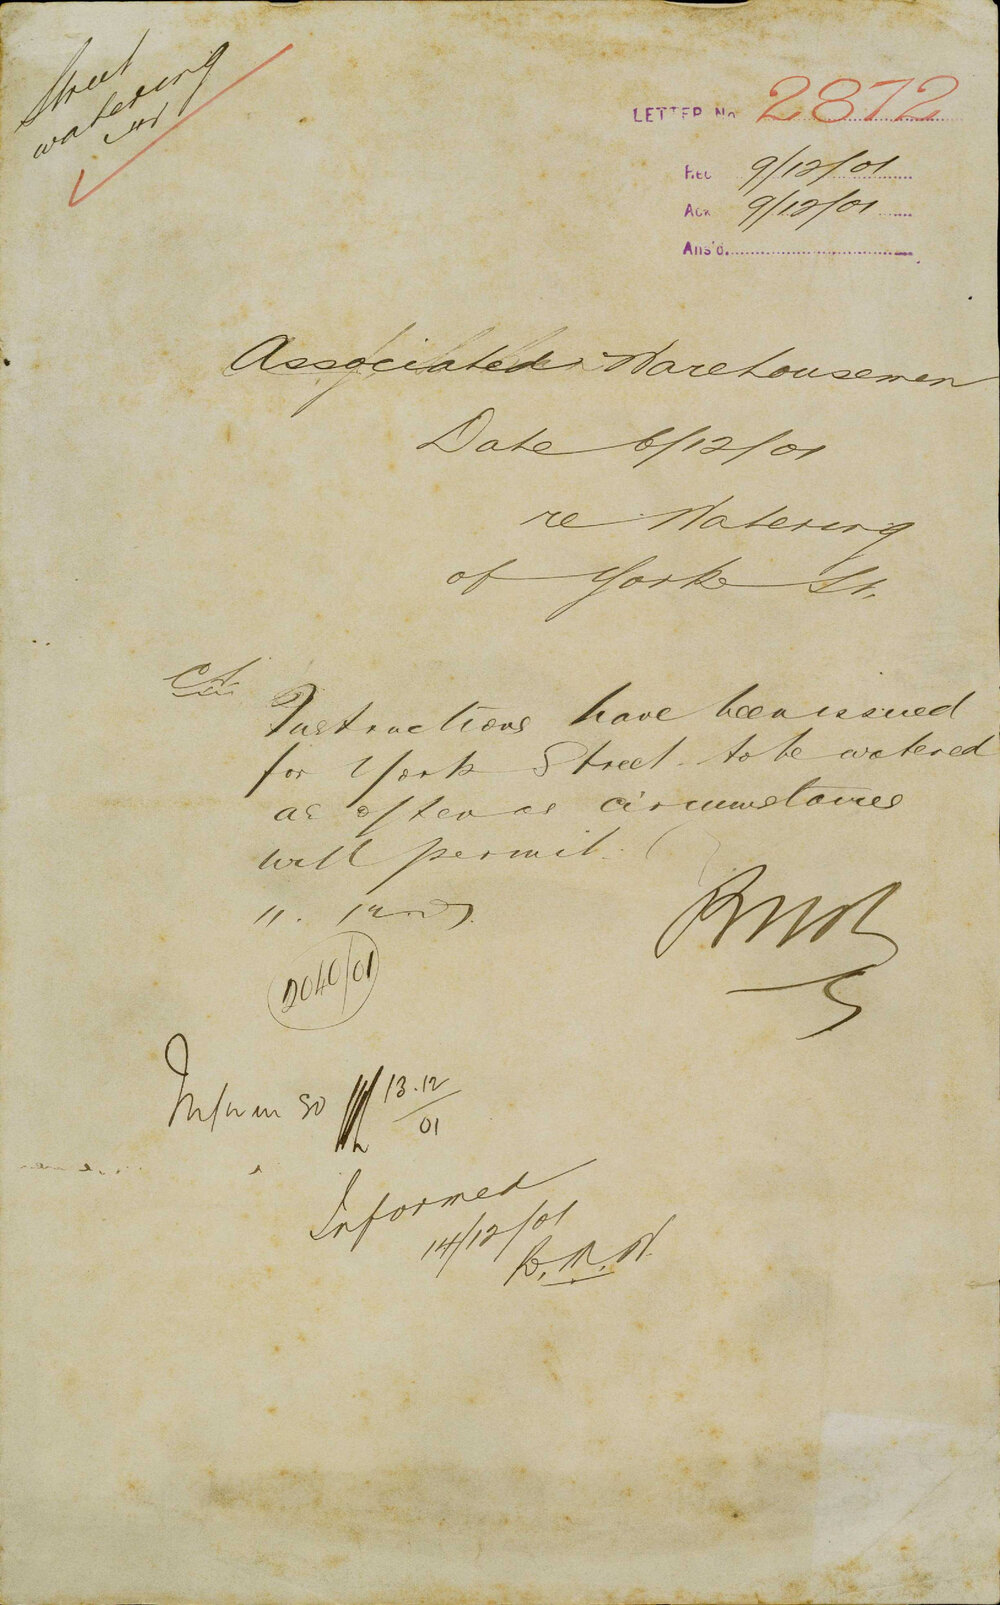 Street
watering
LETTER No 2872
Rec 9/12/01
Ack 9/12/01
Ans'd.
Associated Warehousemen
Date 6/12/01
re Watering
of York St.
Instructions have been issued
for York Street to be watered
as often as circumstances
will permit.
11.
2040/01
Inform so 13.12
01
Informed
14/12/01